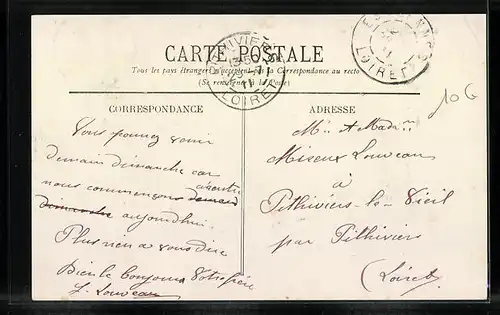 CARTE POSTALE
Tous les pays étrangers n'acceptent pas la Correspondance au recto
(Se renseigner à la Poste)
PITHIVIERS
LOIRET
LOIRET
10 G
CORRESPONDANCE
Vous pouvez venir
demain dimanche car
nous commençons demain
dimanche aujourd'hui.
Plus rien a vous dire
Bien le bonjour Votre frère
L. Louveau
ADRESSE
Mr et Mad
Louveau
à
Pithiviers-le-Vieil
par Pithiviers
(Loiret)